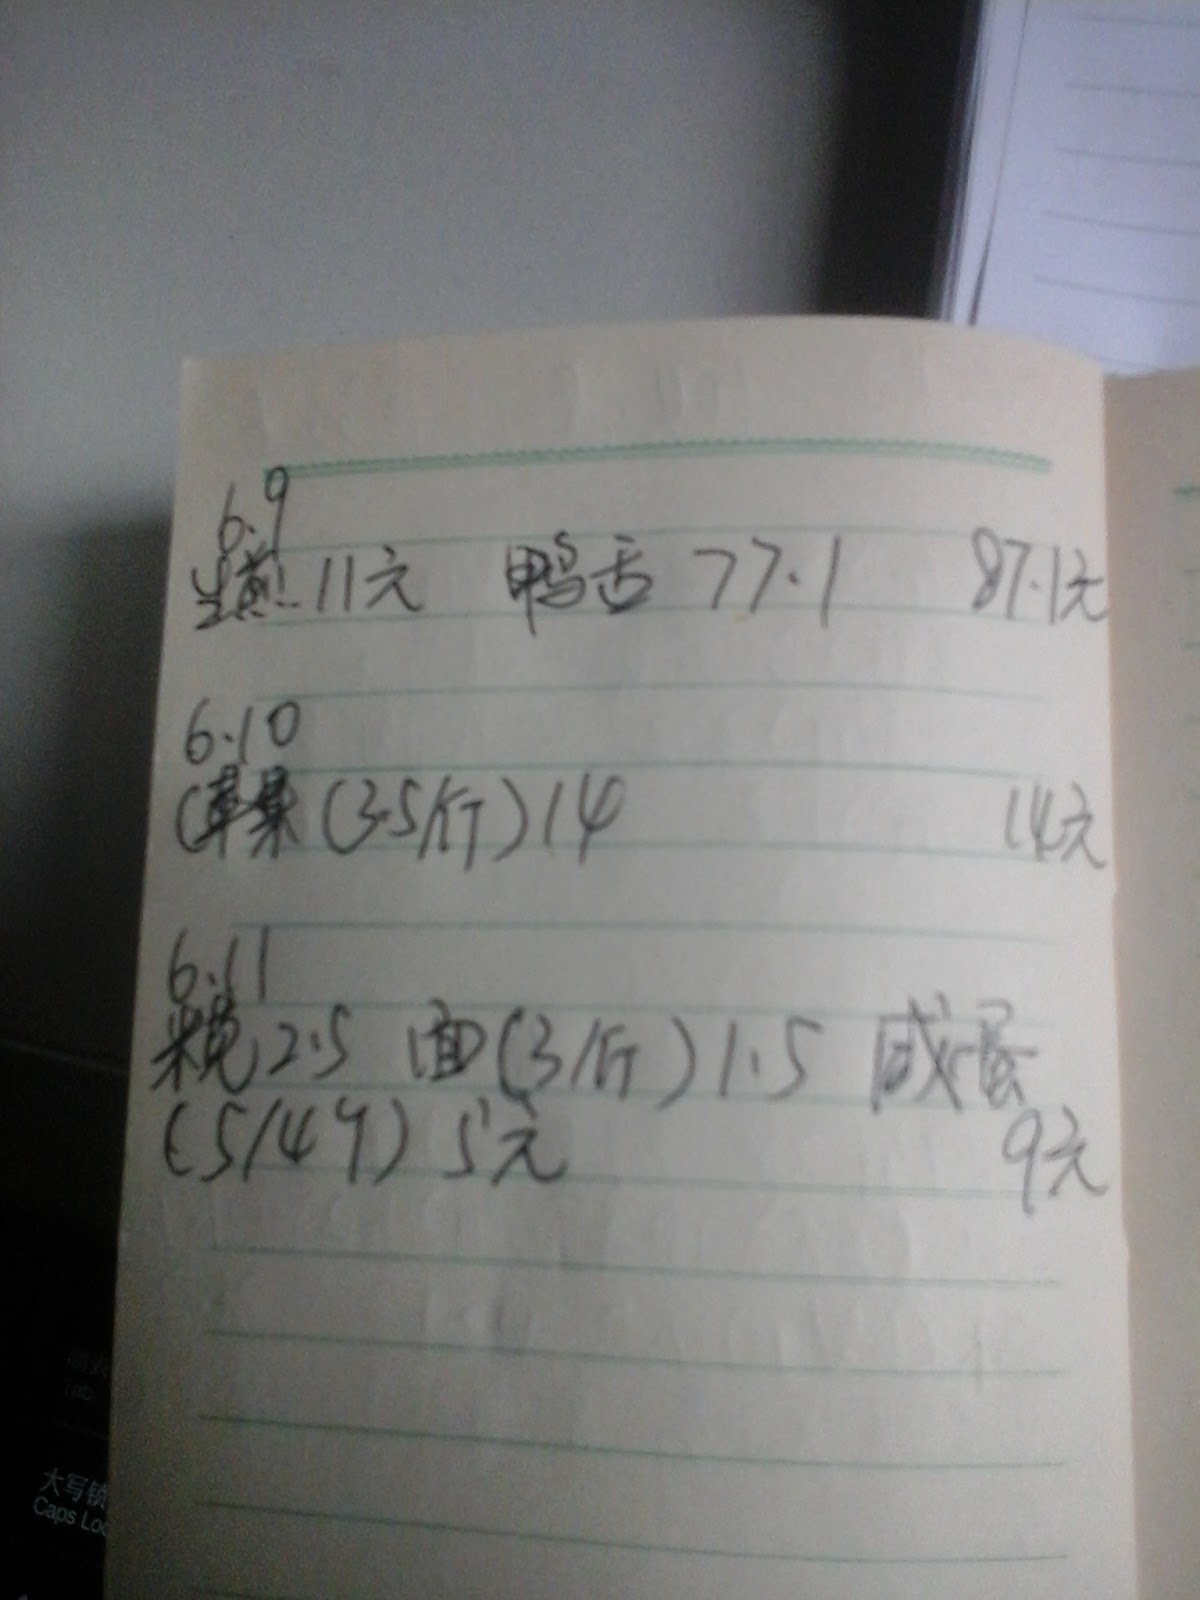 6.9
生煎 11元 鸭舌 77.1 87.1元
6.10
(苹果 (3.5/斤) 14 14元
6.11
2.5 面 (3/斤) 1.5 咸蛋
(5/4个) 5元 9元
Tab
大写锁
Caps Loc